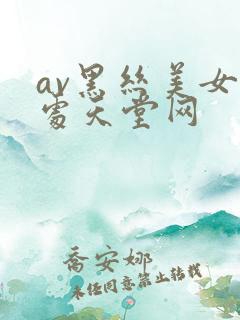 av黑丝美女
露天堂网
乔安娜
未经同意禁止转载